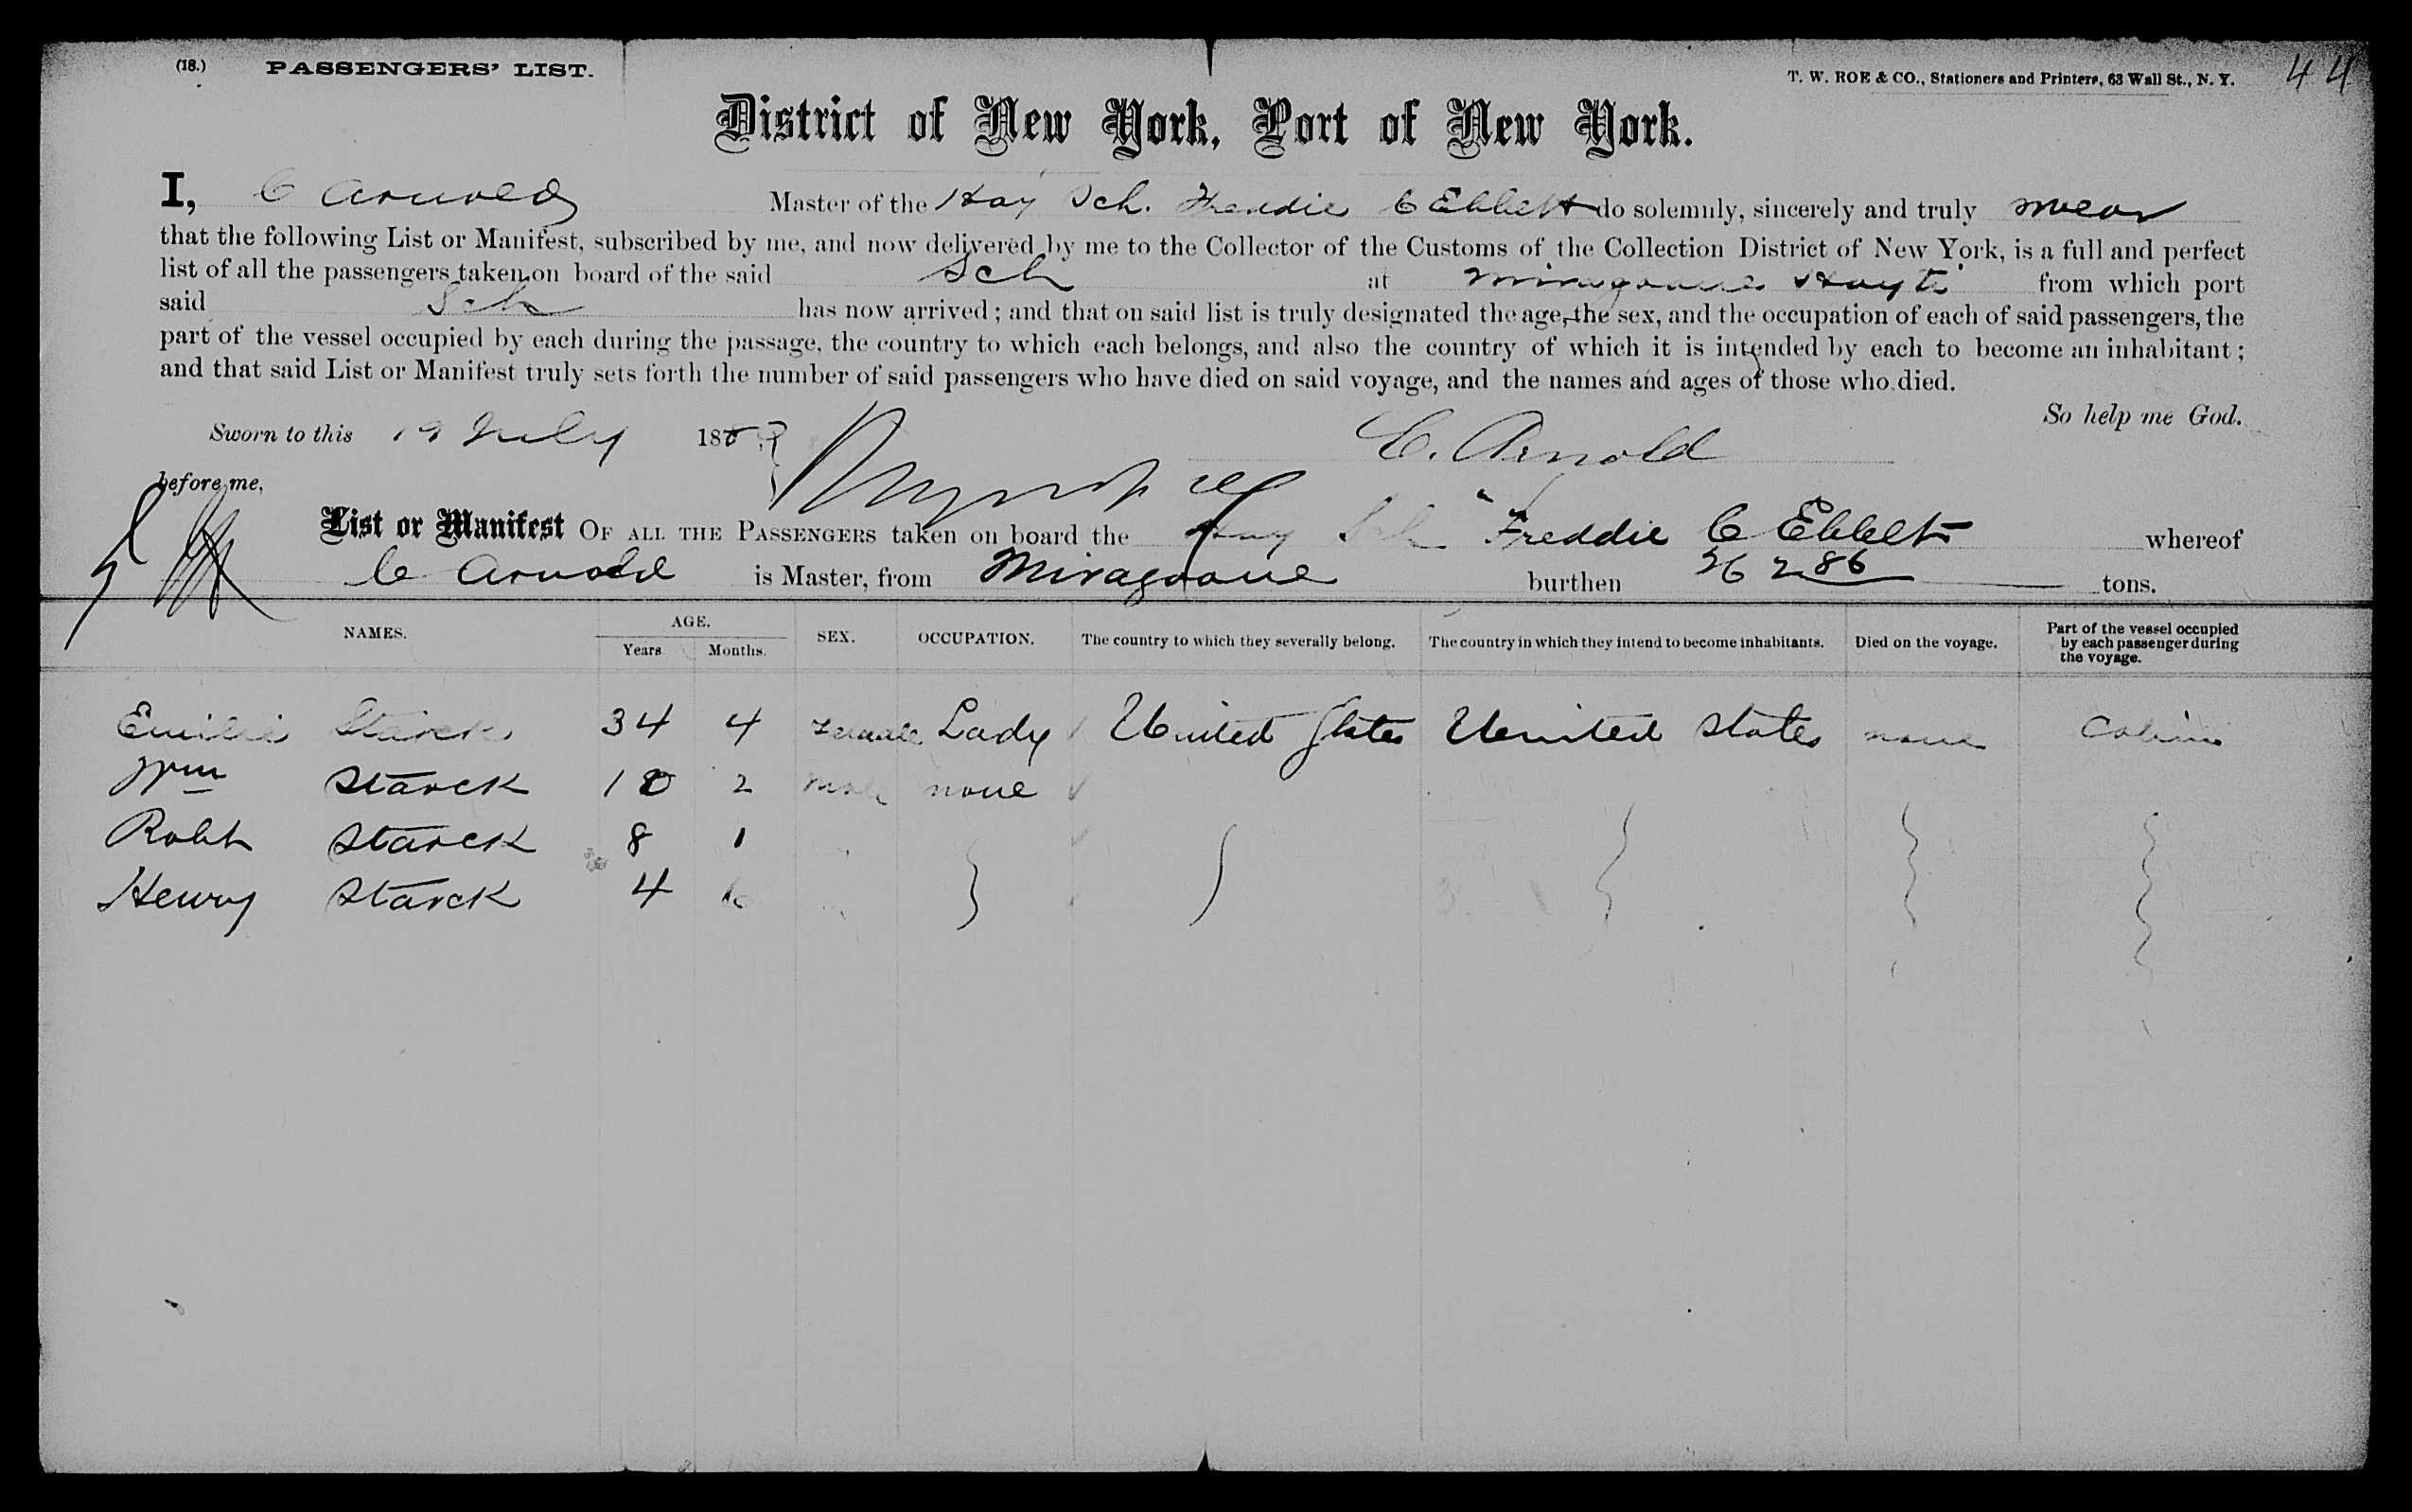 (18.) PASSENGERS' LIST.
T. W. ROE & CO., Stationers and Printers, 63 Wall St., N. Y. 44
District of New York, Port of New York.
I, C Arnold Master of the Hay Sch. Freddie C Ebbett do solemnly, sincerely and truly swear
that the following List or Manifest, subscribed by me, and now delivered by me to the Collector of the Customs of the Collection District of New York, is a full and perfect
list of all the passengers taken on board of the said Sch at Miragoane Hayti from which port
said Sch has now arrived; and that on said list is truly designated the age, the sex, and the occupation of each of said passengers, the
part of the vessel occupied by each during the passage, the country to which each belongs, and also the country of which it is intended by each to become an inhabitant;
and that said List or Manifest truly sets forth the number of said passengers who have died on said voyage, and the names and ages of those who died.
So help me God.
Sworn to this 19 July 188
C. Arnold
before me,
List or Manifest OF ALL THE PASSENGERS taken on board the Hay Sch "Freddie C Ebbett whereof
C Arnold is Master, from Miragoane burthen 262 86 tons.
NAMES. AGE. Years. Months. SEX. OCCUPATION. The country to which they severally belong. The country in which they intend to become inhabitants. Died on the voyage. Part of the vessel occupied by each passenger during the voyage.
Emilie Starck 34 4 Female Lady United States United States none Cabin
Wm Starck 10 2 Male none
Robt Starck 8 1
Henry Starck 4